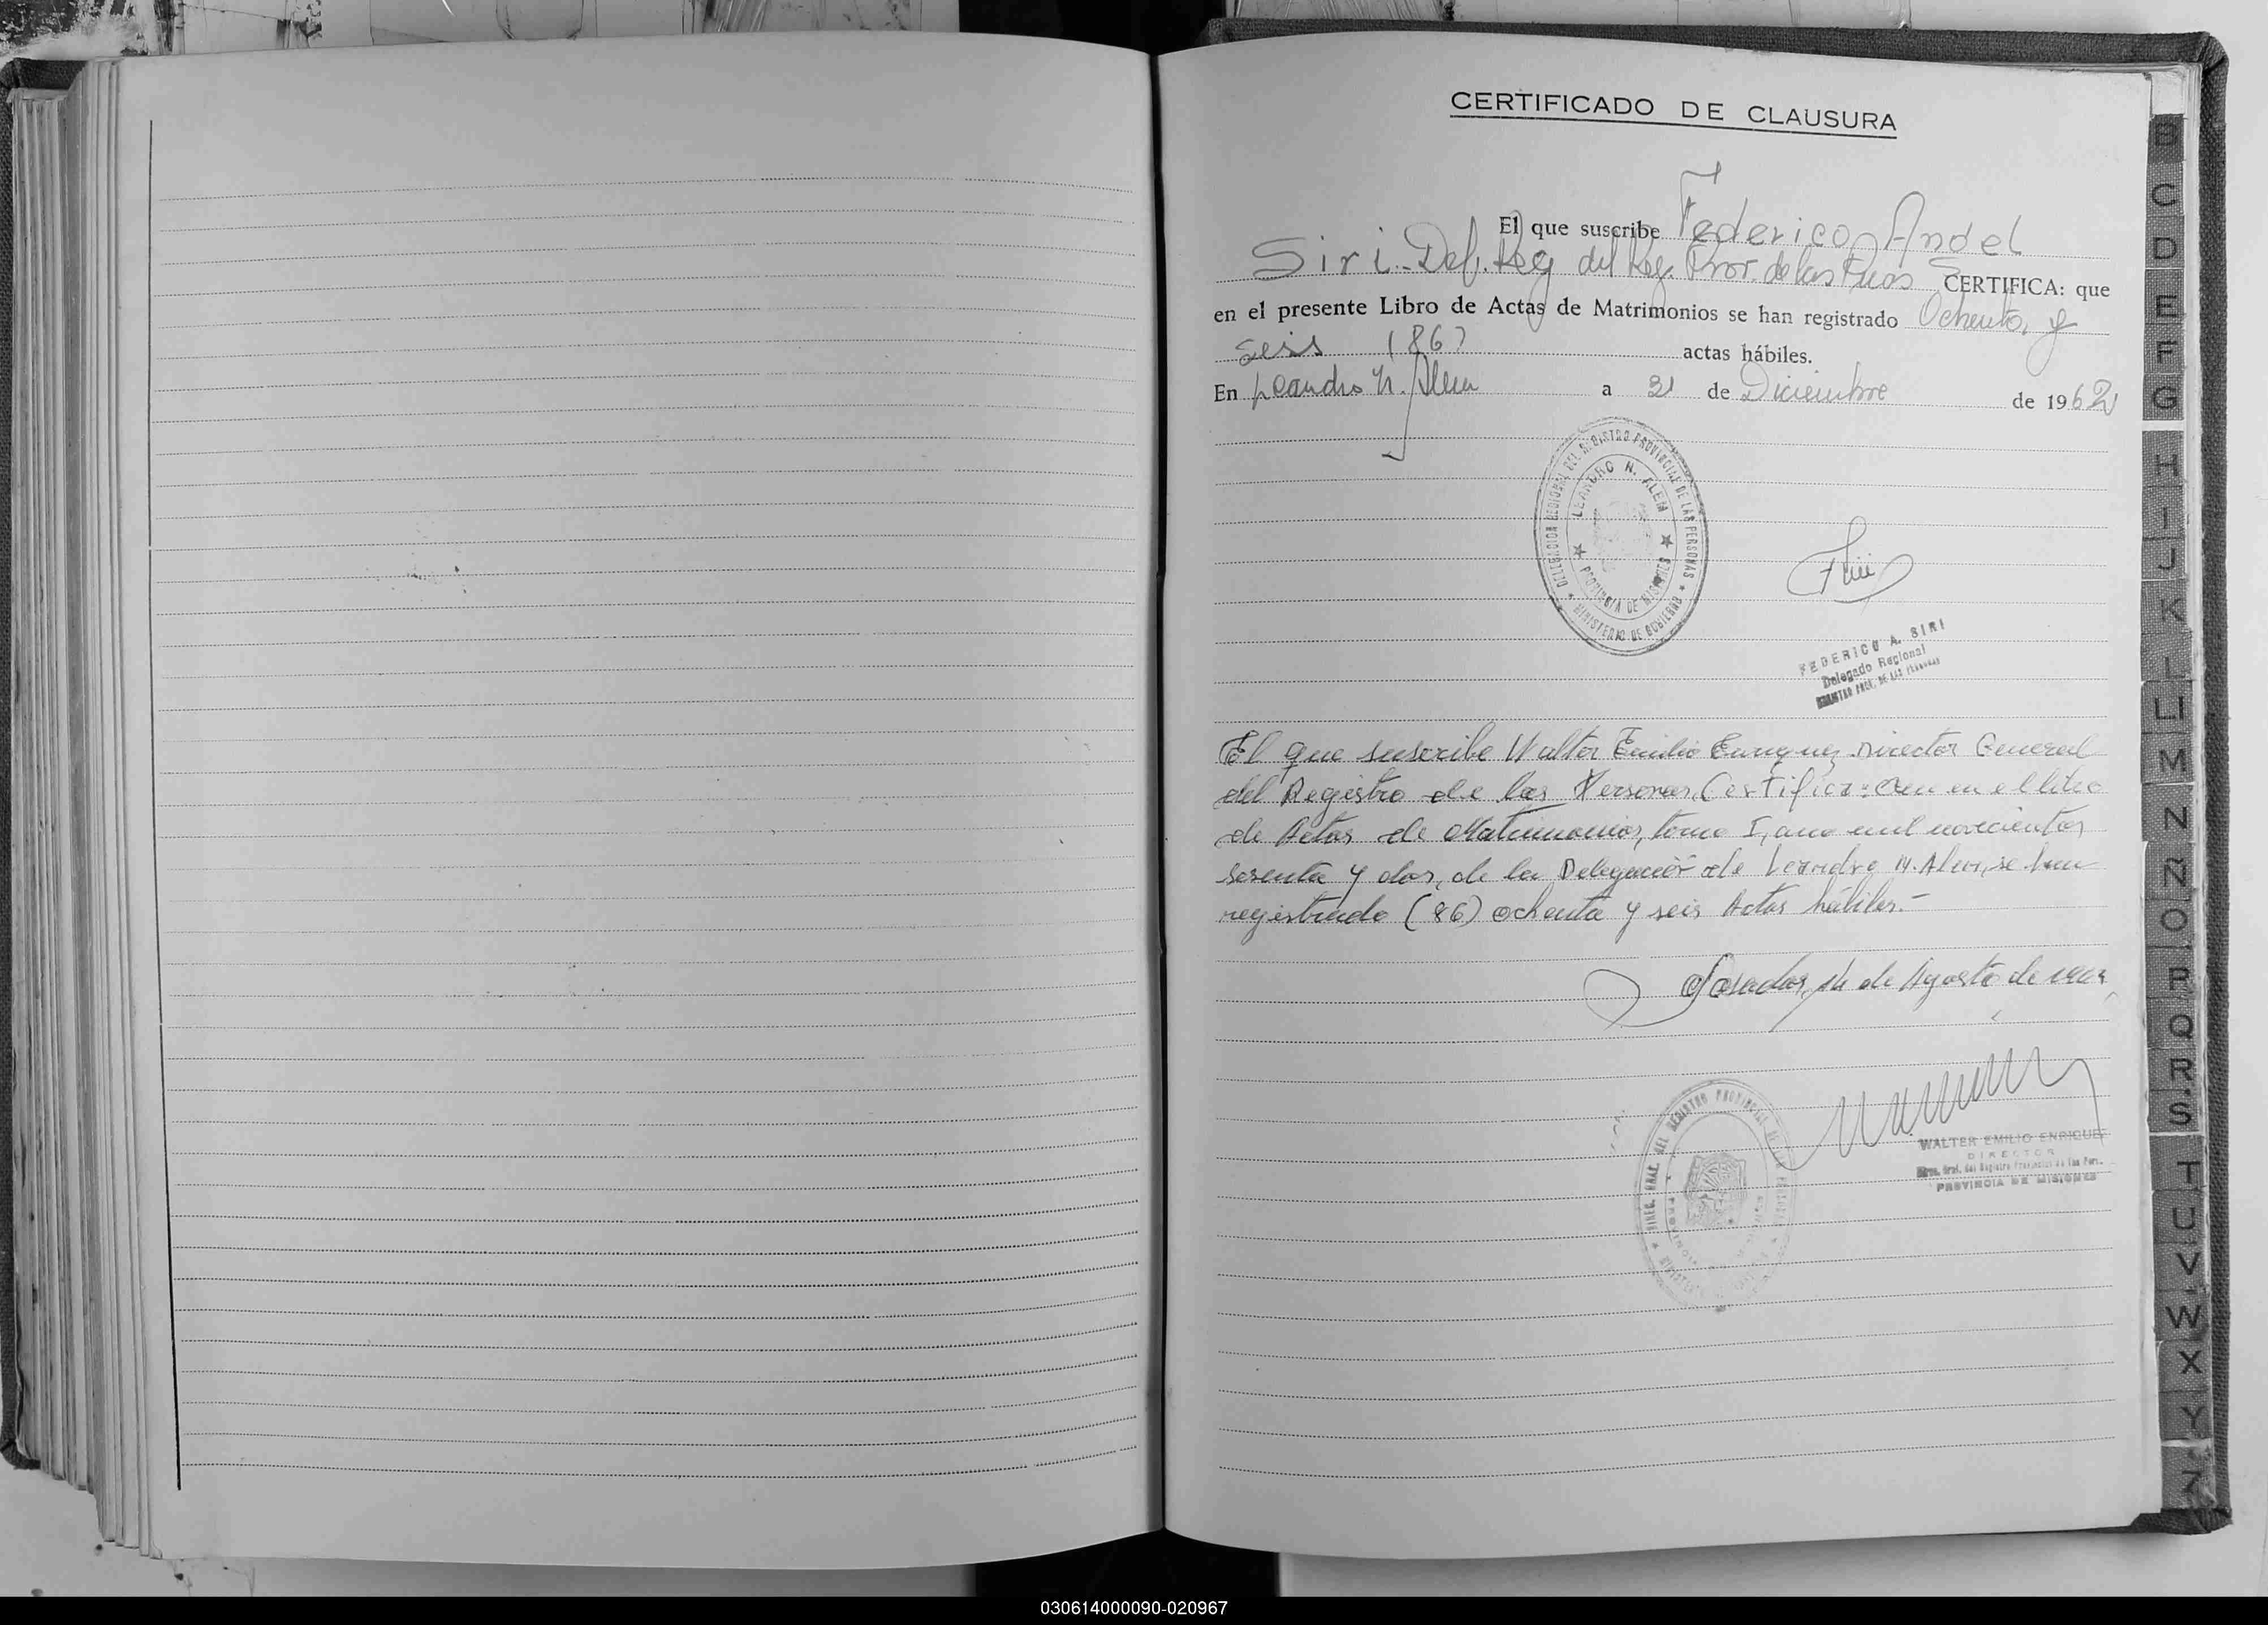 CERTIFICADO DE CLAUSURA
El que suscribe Federico Angel
Siri. Del. Reg del Reg. Prov. de las CERTIFICA: que
en el presente Libro de Actas de Matrimonios se han registrado Ochenta y
seis (86) actas hábiles.
En Leandro N. Alem a 31 de Diciembre de 1962
DELEGACION REGIONAL DEL REGISTRO PROVINCIAL DE LAS PERSONAS
LEANDRO N. ALEM
PROVINCIA DE MISIONES
MINISTERIO DE GOBIERNO
FEDERICO A. SIRI
Delegado Regional
REGISTRO PROV. DE LAS PERSONAS
El que suscribe Walter Emilio Enriquez Director General
del Registro de las Personas, Certifica: Que en el libro
de Actas de Matrimonios, tomo I, ano mil novecientos
sesenta y dos, de la Delegación de Leandro N. Alem, se han
registrado (86) ochenta y seis Actas hábiles.-
Posadas, 14 de Agosto de
DIREC. GRAL. DEL REGISTRO PROVINCIAL DE LAS
WALTER EMILIO ENRIQUEZ
DIRECTOR
Direc. Gral. del Registro Provincial de las Pers.
PROVINCIA DE MISIONES
B
C
D
E
F
G
H
I
J
K
L
Ll
M
N
Ñ
O
P
Q
R
S
T
U
V
W
X
Y
Z
030614000090-020967